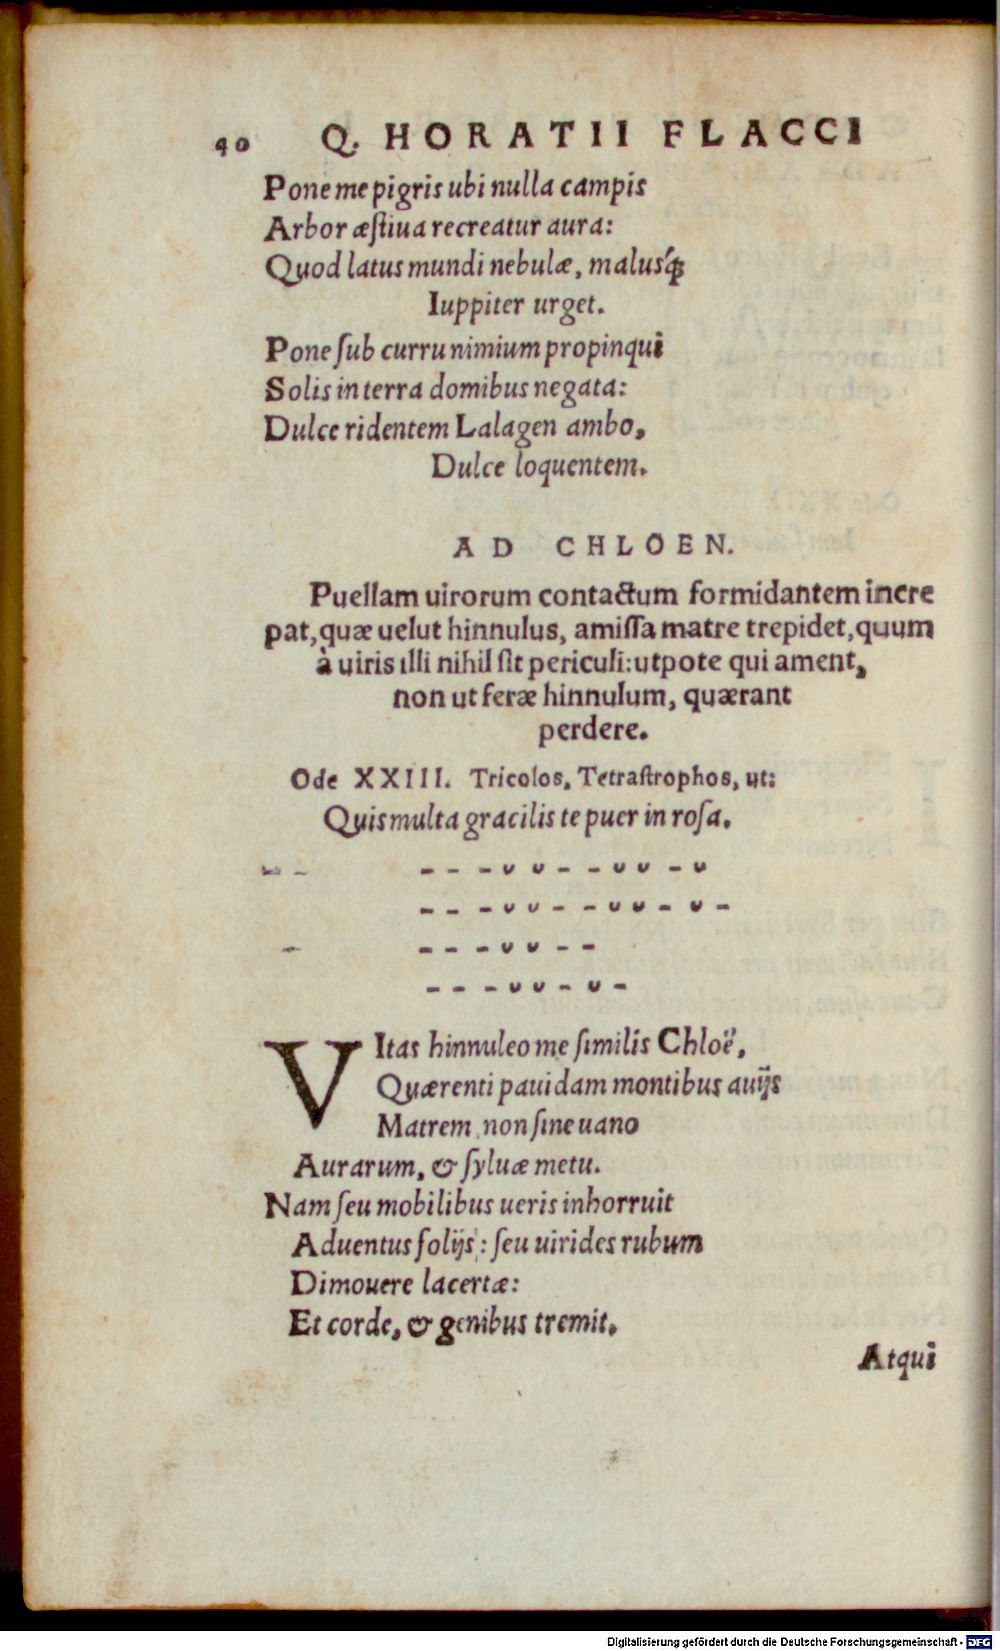 40 Q. HORATII FLACCI
Pone me pigris ubi nulla campis
Arbor æstiua recreatur aura:
Quod latus mundi nebulæ, malusq́;
Iuppiter urget.
Pone sub curru nimium propinqui
Solis in terra domibus negata:
Dulce ridentem Lalagen ambo,
Dulce loquentem.
AD CHLOEN.
Puellam uirorum contactum formidantem incre
pat, quæ uelut hinnulus, amissa matre trepidet, quum
à uiris illi nihil sit periculi: utpote qui ament,
non ut feræ hinnulum, quærant
perdere.
Ode XXIII. Tricolos, Tetrastrophos, ut:
Quis multa gracilis te puer in rosa.
– – – ᴗ ᴗ – – ᴗ ᴗ – ᴗ
– – – ᴗ ᴗ – – ᴗ ᴗ – ᴗ –
– – – ᴗ ᴗ – –
– – – ᴗ ᴗ – ᴗ –
VItas hinnuleo me similis Chloë,
Quærenti pauidam montibus auijs
Matrem, non sine uano
Aurarum, & syluæ metu.
Nam seu mobilibus ueris inhorruit
Aduentus folijs: seu uirides rubum
Dimouere lacertæ:
Et corde, & genibus tremit.
Atqui
Digitalisierung gefördert durch die Deutsche Forschungsgemeinschaft - DFG